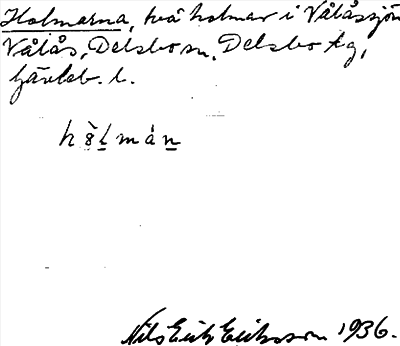 Holmarna, två holmar i Vålåssjön
Vålås, Delsbo sn, Delsbo tg,
Gävleb. l.
hò̱lmán
Nils Erik Eriksson 1936.